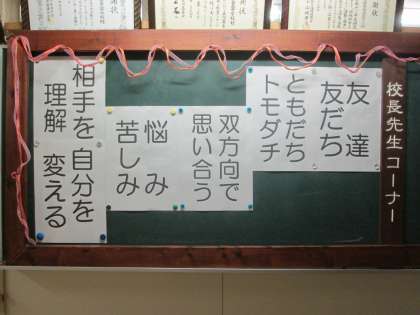 校長先生コーナー
友達
友だち
ともだち
トモダチ
双方向で
思い合う
悩み
苦しみ
相手を 自分を
理解 変える